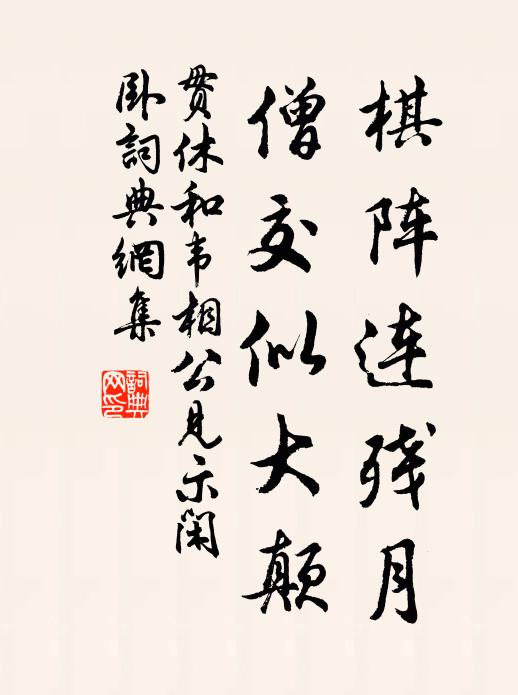 棋阵连残月
僧交似大颠
贯休和韦相公见示闲
卧詞典網集
詞典
网印